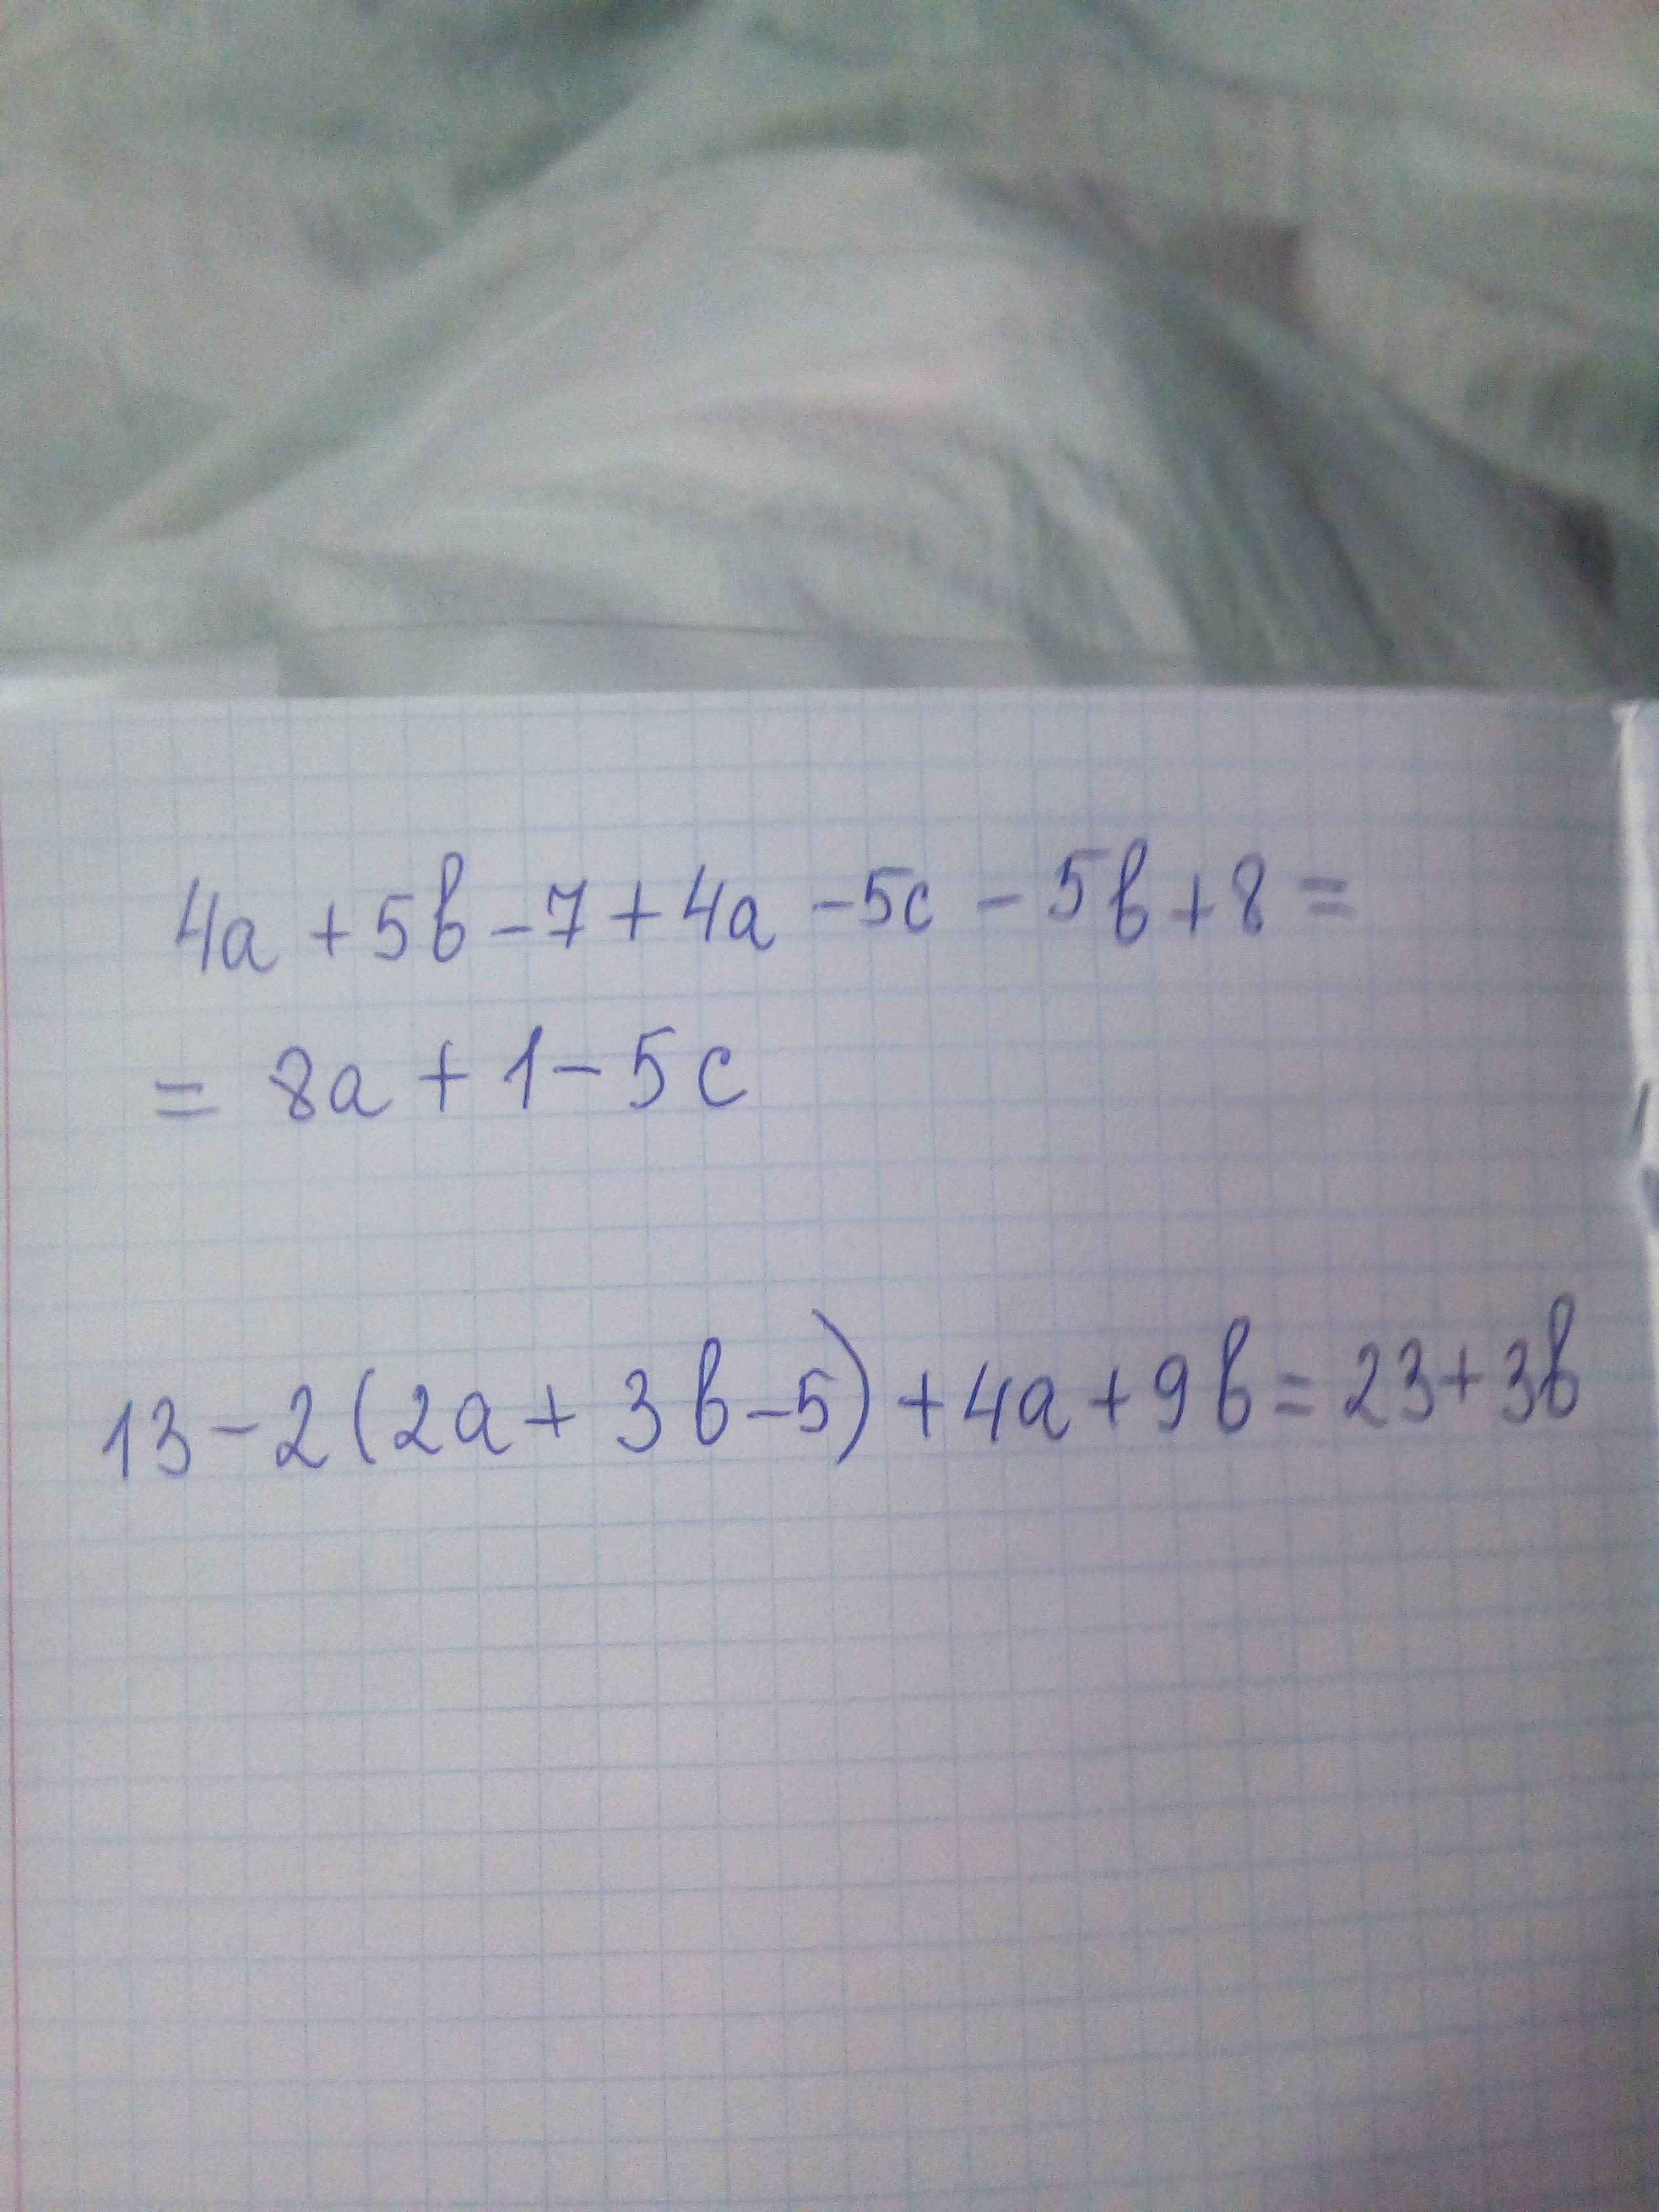 4a + 5b - 7 + 4a - 5c - 5b + 8 =
= 8a + 1 - 5c
13 - 2(2a + 3b - 5) + 4a + 9b = 23 + 3b